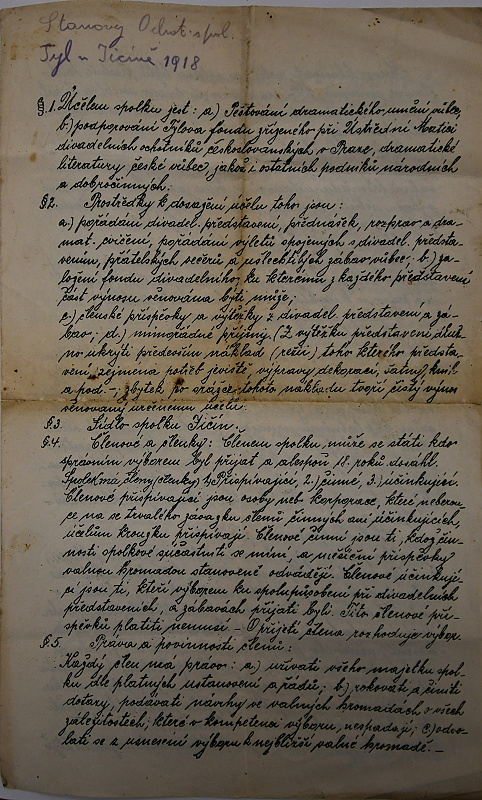 Stanovy Ochot. spol.
Tyl v Jičíně 1918
§ 1. Účelem spolku jest: a.) Pěstování dramatického umění vůbec,
b.) podporování Tylova fondu zřízeného při Ústřední Matici
divadelních ochotníků českoslovanských v Praze, dramatické
literatury české vůbec, jakož i ostatních podniků národních
a dobročinných.
§ 2. Prostředky k dosažení účelu toho jsou:
a.) pořádání divadel. představení, přednášek, rozprav a dra-
mat. cvičení, pořádání výletů spojených s divadel. předsta-
vením, přátelských večerů a ušlechtilých zábav vůbec; b.) za-
ložení fondu divadelního, ku kterému z každého představení
část výnosu věnována býti může;
c.) členské příspěvky a výtěžky z divadel. představení a zá-
bav; d.) mimořádné příjmy. (Z výtěžku představení dluž-
no ukrýti především náklad (režii) toho kterého předsta-
vení zejmena potřeb jeviště, výpravy dekorací, šatny, knih
a pod. –; zbytek po srážce tohoto nákladu tvoří čistý výnos
věnovaný určenému účelu.
§ 3. Sídlo spolku Jičín.
§ 4. Členové a členky: Členem spolku může se státi kdo
správním výborem byl přijat a alespoň 18. roků dosáhl.
Spolek má členy (členky) 1.) Přispívající, 2.) činné, 3.) účinkující.
Členové přispívající jsou osoby neb korporace, které neberou-
ce na se trvalého závazku členů činných ani účinkujících,
účelům kroužku přispívají. Členové činní jsou ti, kdož čin-
nosti spolkové súčastniti se míní, a měsíční příspěvky
valnou hromadou stanovené odvádějí. Členové účinkují-
cí jsou ti, kteří výborem ku spolupůsobení při divadelních
představeních, a zábavách přijati byli. Tito členové pří-
spěvků platiti nemusí. – O přijetí člena rozhoduje výbor.
§ 5. Práva a povinnosti členů:
Každý člen má právo: a.) užívati všeho majetku spol-
ku dle platných ustanovení a řádů; b.) rokovati a činiti
dotazy, podávati návrhy ve valných hromadách o všech
záležitostech, které v kompetenci výboru, nespadají; c.) odvo-
lati se z usnesení výboru k nejbližší valné hromadě. –